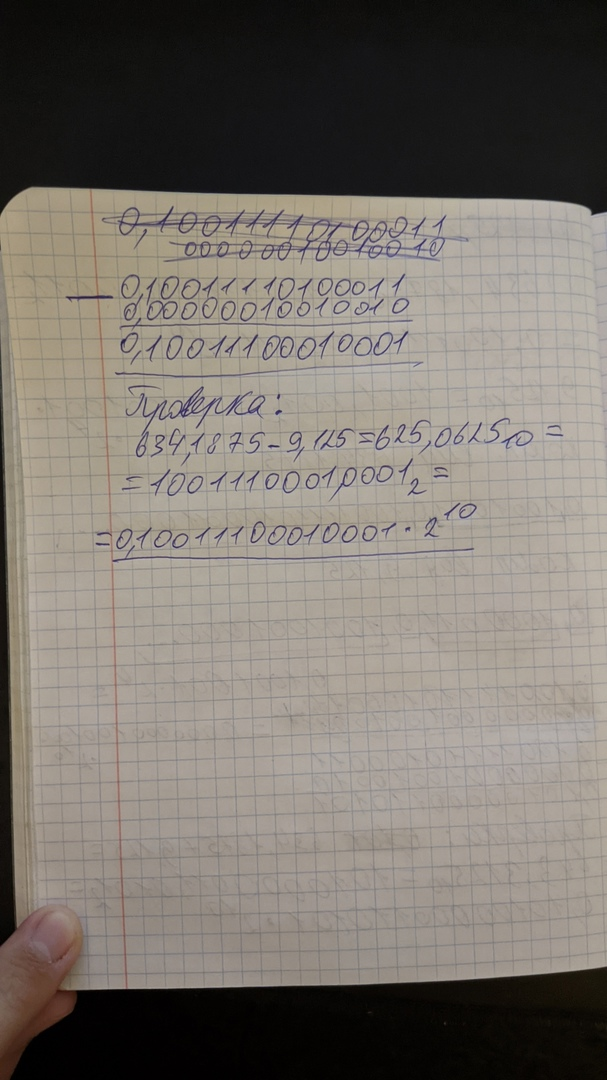 0,10011110100011
00000010010010
0,10011110100011
0,00000010010010
0,10011100010001
Проверка:
634,1875-9,125=625,0625₁₀=
=1001110001,0001₂=
=0,10011100010001·2¹⁰